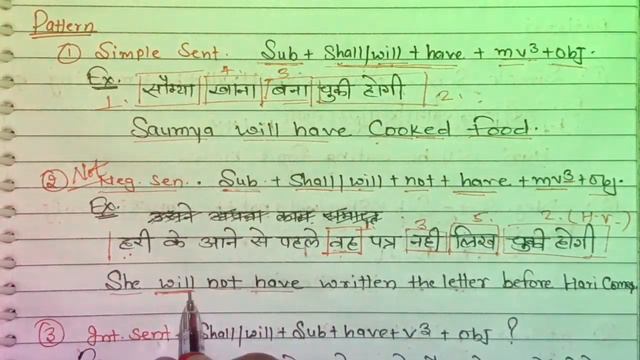 Pattern
① Simple Sent. Sub + Shall/will + have + mv³ + obj.
Ex. 1. सौम्या 4. खाना 3. बना चुकी होगी 2.
Saumya will have Cooked food.
② Not Neg. Sen. Sub + Shall/will + not + have + mv³ + obj.
Ex. 2. (H.V.)
हरी के आने से पहले वह पत्र 3. नहीं 5. लिख चुकी होगी
She will not have written the letter before Hari
③ Int. sent Shall/will + Sub + have + v³ + obj ?